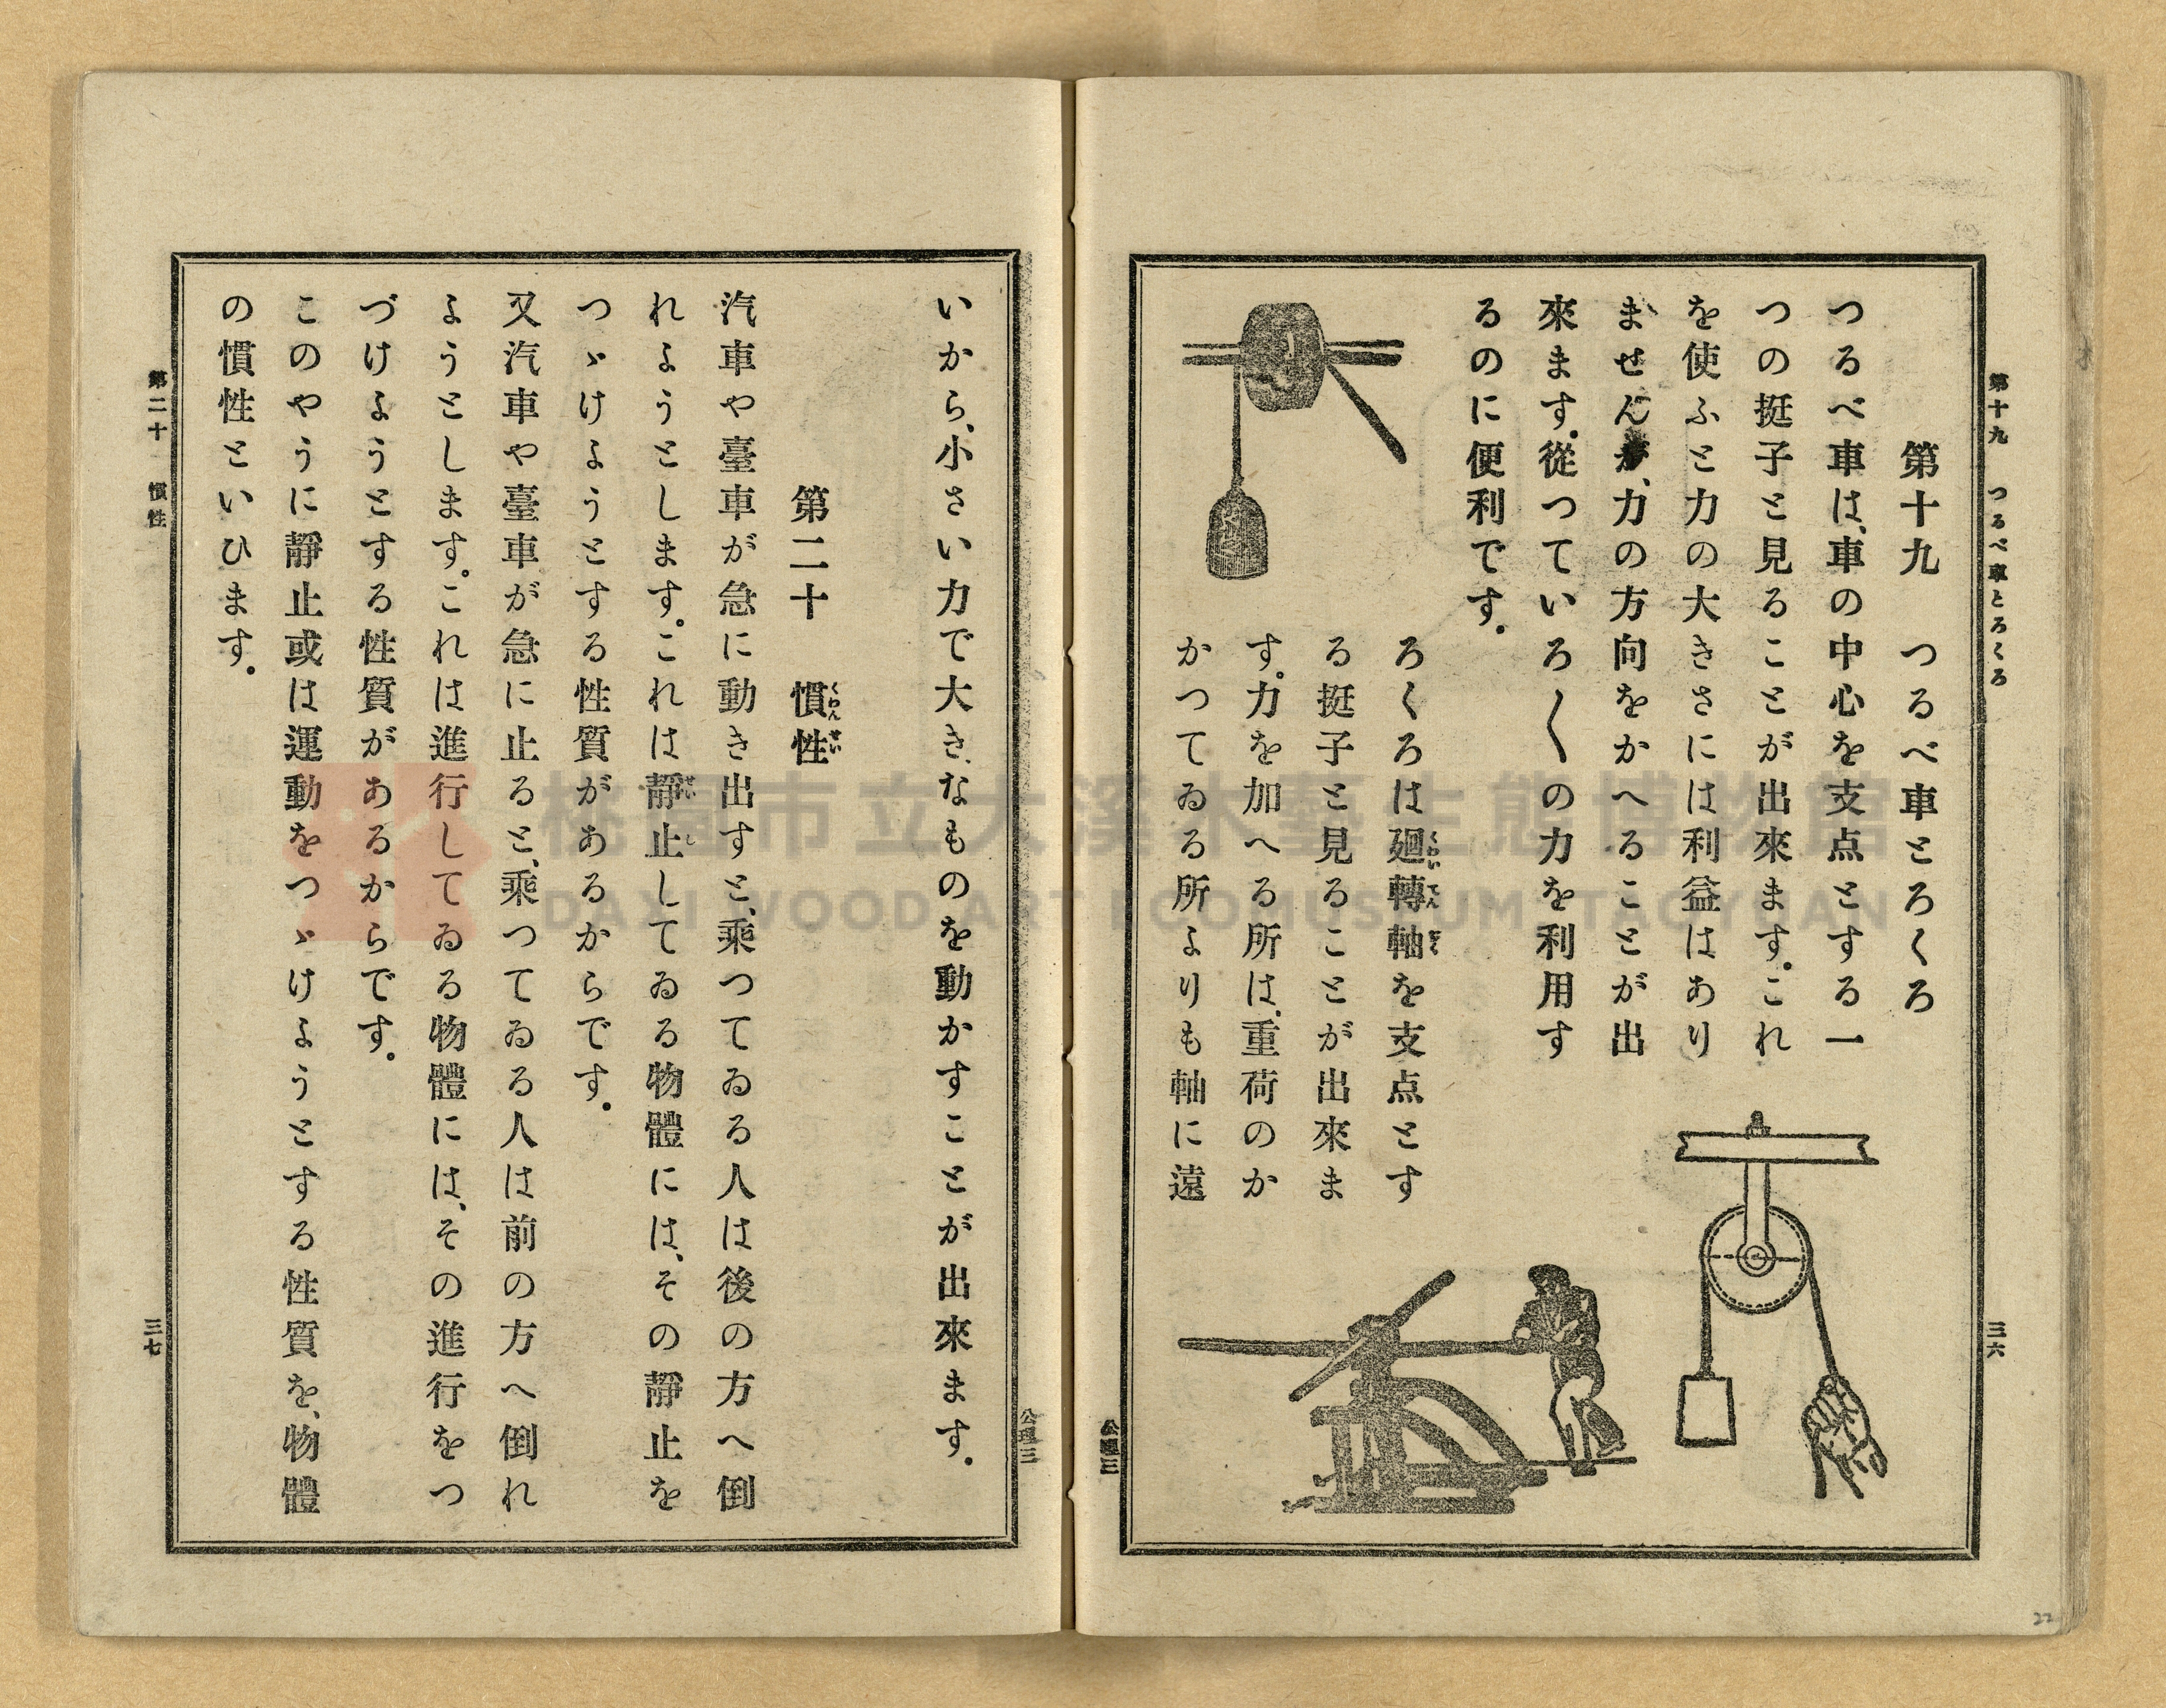 第十九　つるべ車とろくろ
三六
第十九　つるべ車とろくろ
つるべ車は、車の中心を支点とする一
つの挺子と見ることが出來ます。これ
を使ふと力の大きさには利益はあり
ませんが、力の方向をかへることが出
來ます。從つていろ〳〵の力を利用す
るのに便利です。
ろくろは廻轉軸を支点とす
る挺子と見ることが出來ま
す。力を加へる所は、重荷のか
かつてゐる所よりも軸に遠
公理三
公理三
いから、小さい力で大きなものを動かすことが出來ます。
第二十　慣性
くわんせい
汽車や臺車が急に動き出すと、乘つてゐる人は後の方へ倒
れようとします。これは靜止してゐる物體には、その靜止を
つゞけようとする性質があるからです。
又汽車や臺車が急に止ると、乘つてゐる人は前の方へ倒れ
ようとします。これは進行してゐる物體には、その進行をつ
づけようとする性質があるからです。
このやうに靜止或は運動をつゞけようとする性質を、物體
の慣性といひます。
第二十　慣性
三七
桃園市立大溪木藝生態博物館
DAXI WOOD ART ECOMUSEUM, TAOYUAN
22